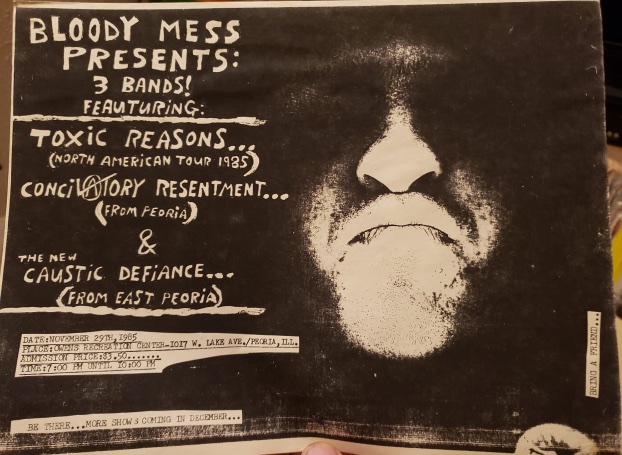 BLOODY MESS
PRESENTS:
3 BANDS!
FEAUTURING:
TOXIC REASONS...
(NORTH AMERICAN TOUR 1985)
CONCILIATORY RESENTMENT...
(FROM PEORIA)
&
THE NEW
CAUSTIC DEFIANCE...
(FROM EAST PEORIA)
DATE:NOVEMBER 29TH,1985
PLACE:OWENS RECREATION CENTER-1017 W. LAKE AVE./PEORIA,ILL.
ADMISSION PRICE:$3.50.......
TIME:7:00 PM UNTIL 10:00 PM
BE THERE...MORE SHOWS COMING IN DECEMBER...
BRING A FRIEND...